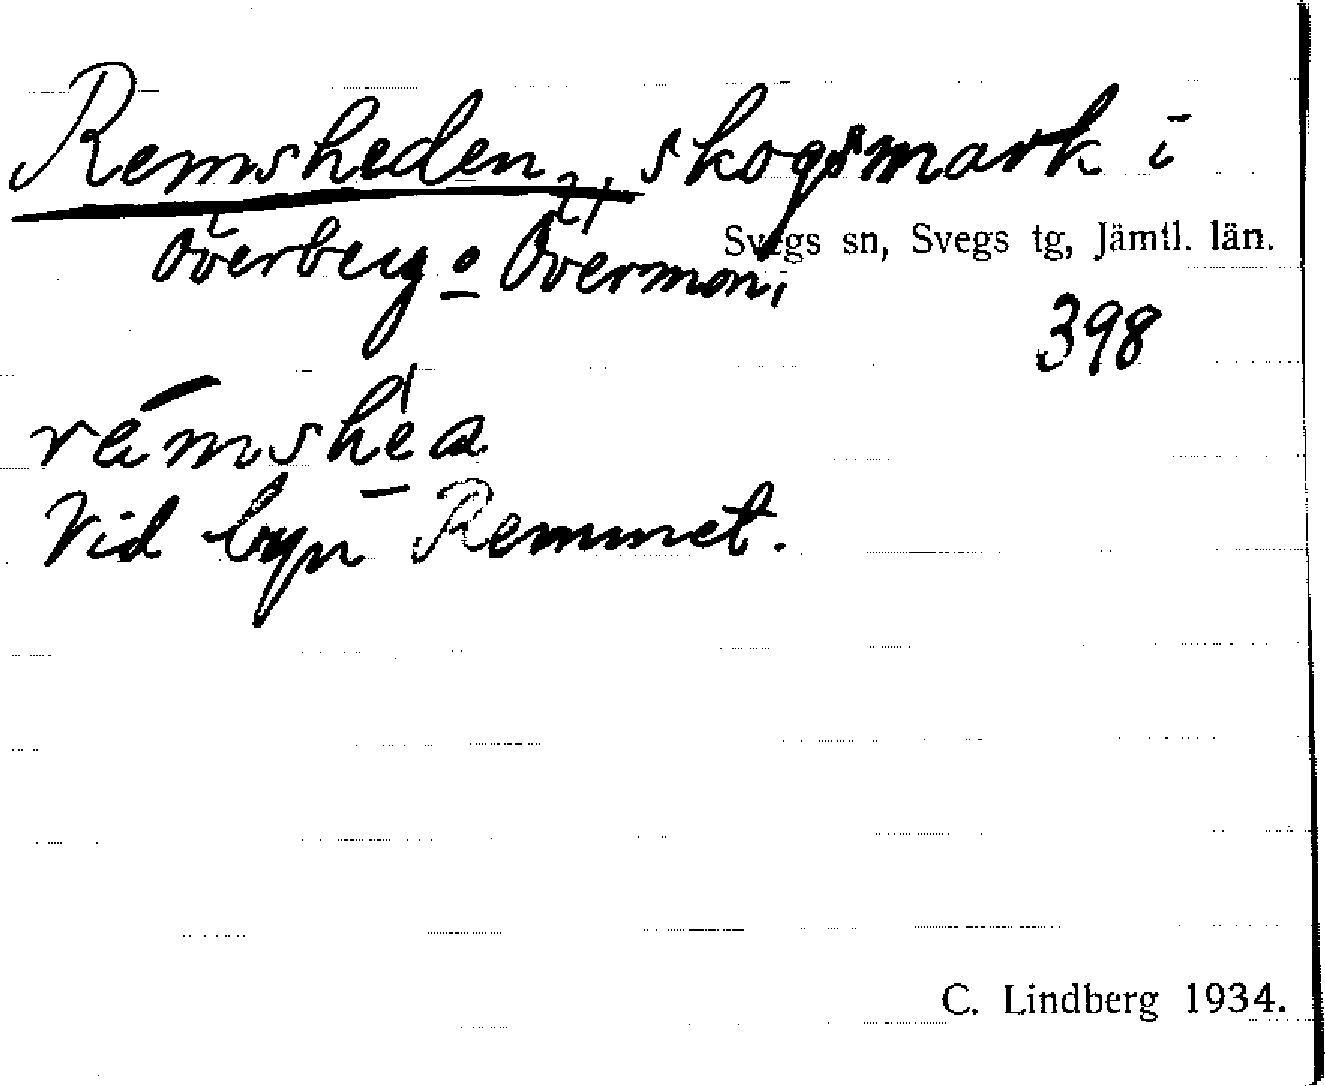 Remsheden, skogsmark i
Överberg o Övermon,
Svegs sn, Svegs tg, Jämtl. län.
398
rémshea
Vid byn Remmet.
C. Lindberg 1934.